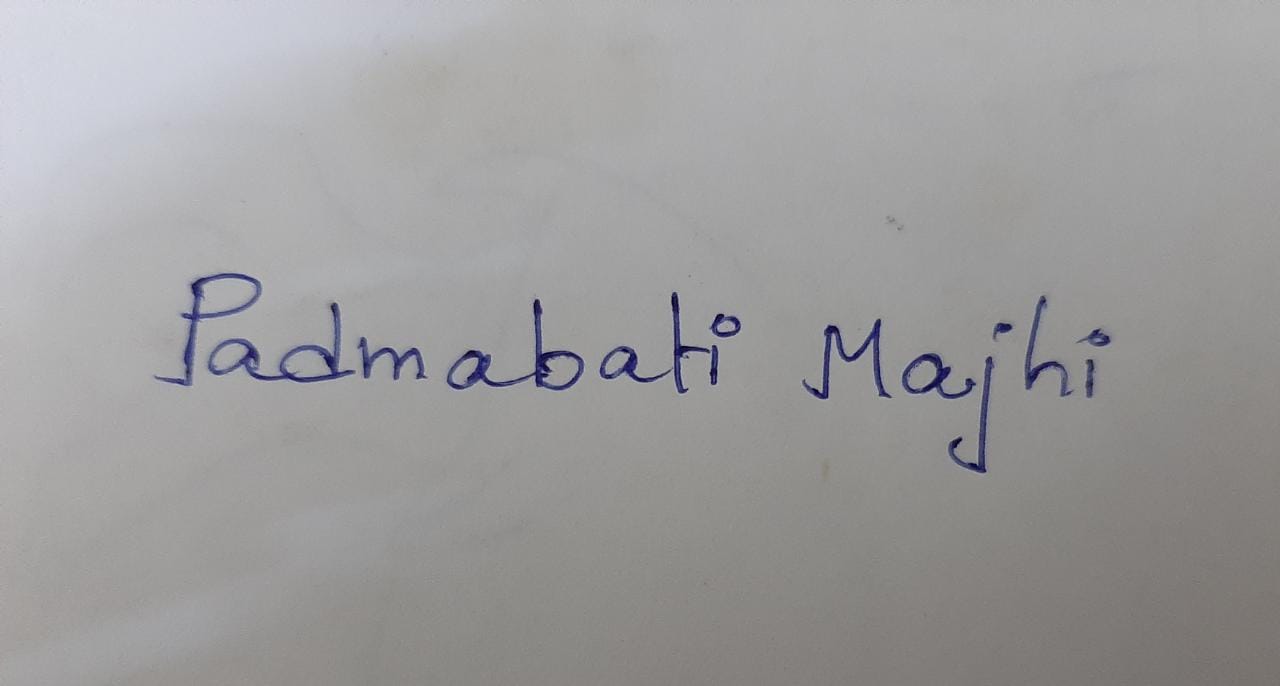 Padmabati Majhi